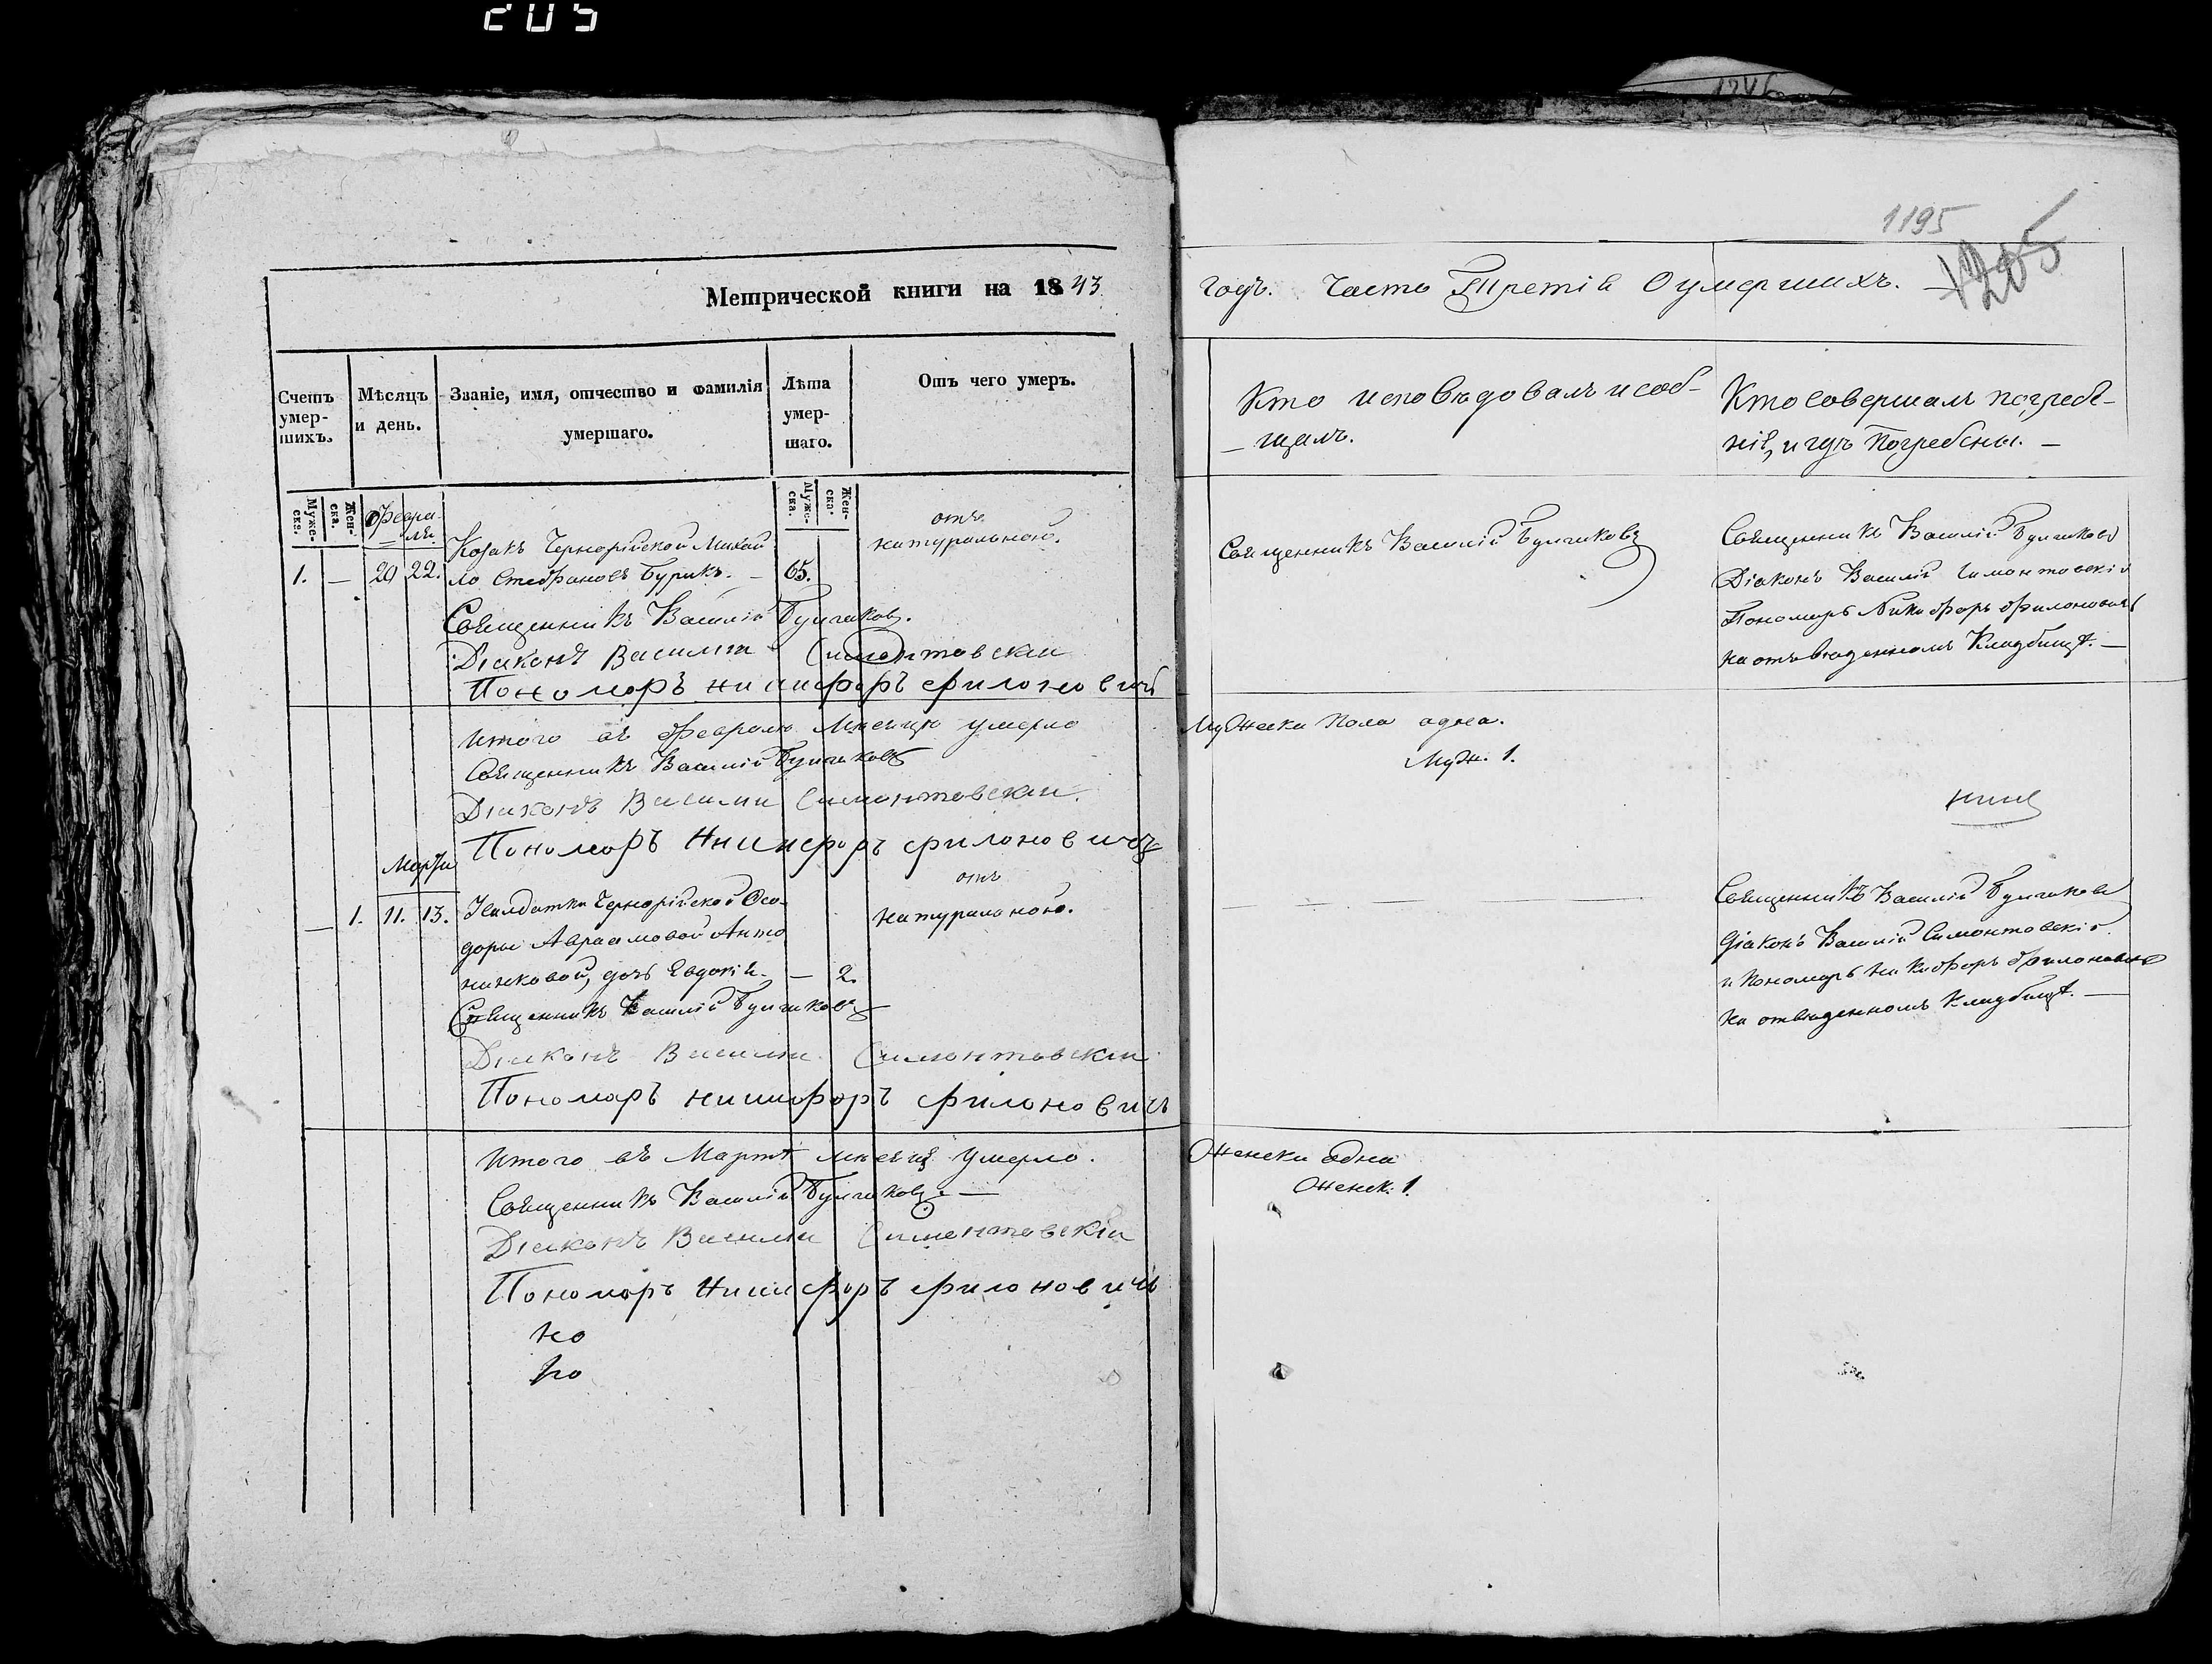 205
Метрической книги на 1843
Счетъ умер-шихъ.
Мѣсяцъ и день.
Званіе, имя, отчество и фамилія умершаго.
Лѣта умер-шаго.
Отъ чего умеръ.
Муже-ска.
Жен-ска.
Февра-
ля.
Муже-ска.
Жен-ска.
отъ
натуральной.
Козакъ Чернорійской Михай
1. — 20 22. ло Стефановъ Бурикъ. — 65.
Священникъ Василій Булгаковъ.
Діаконъ Василій Симонтовскій
Пономоръ Никифоръ Филоновичъ
Итого въ Февралю Мѣсяцѣ умерло
Священникъ Василій Булгаковъ
Діаконъ Василій Симонтовскій.
Пономоръ Никифоръ Филоновичъ
Марта
отъ
— 1. 11. 13. Чернорійской Ѳео-
натуральной.
доры Авраамовой
дочь Евдокія. — 2.
Священникъ Василій Булгаковъ
Діаконъ Василій Симонтовскій
Пономаръ Никифоръ Филоновичъ
Итого въ Мартѣ мѣсяцѣ умерло.
Священникъ Василій Булгаковъ. —
Діаконъ Василій Симонтовскій
Пономоръ Никифоръ Филоновичъ
но
но
1195
205
годъ. Часть Третія О умершихъ.
Кто исповѣдовалъ и соб-
-щалъ.
Кто совершалъ погребе-
ніе, и гдѣ погребены. —
Священникъ Василій Булгаковъ
Священникъ Василій Булгаковъ
Діаконъ Василій Симонтовскій
Пономаръ Никифоръ Филоновичъ
на отъвѣденномъ Кладбищѣ. —
Мужеска пола одна.
Муж. 1.
Священникъ Василій Булгаковъ
Діаконъ Василій Симонтовскій
и Пономаръ Никифоръ Филоновичъ
на отвѣденномъ Кладбищѣ. —
Женска одна
Женск. 1.